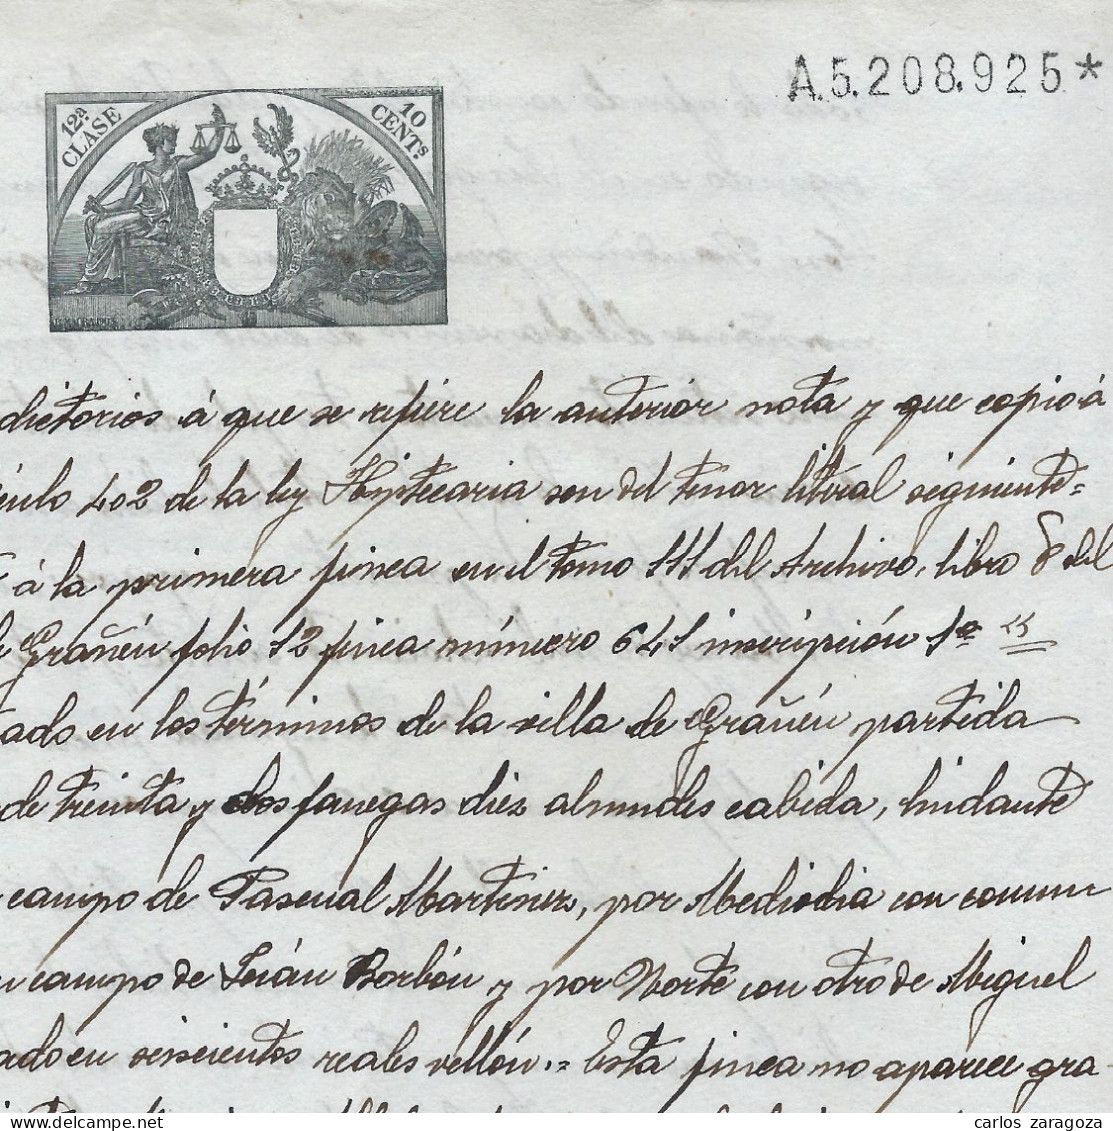 A.5.208.925*
12ª CLASE
10 CENTs
dictorios á que se refiere la anterior nota y que copio á
ículo 402 de la ley Hiptecaria son del tenor literal siguiente=
á la primera finca en el tomo 111 del Archivo, libro 8 del
Grañén folio 12 finca número 641 inscripción 1ª =
ado en los términos de la villa de Grañén partida
de treinta y dos fanegas diez almudes cabida, lindante
campo de Pascual Martinez, por Mediodia con comun
campo de Julián Borbón y por Norte con otro de Miguel
ado en seiscientos reales vellón.= Esta finca no aparece gra-
carlos zaragoza